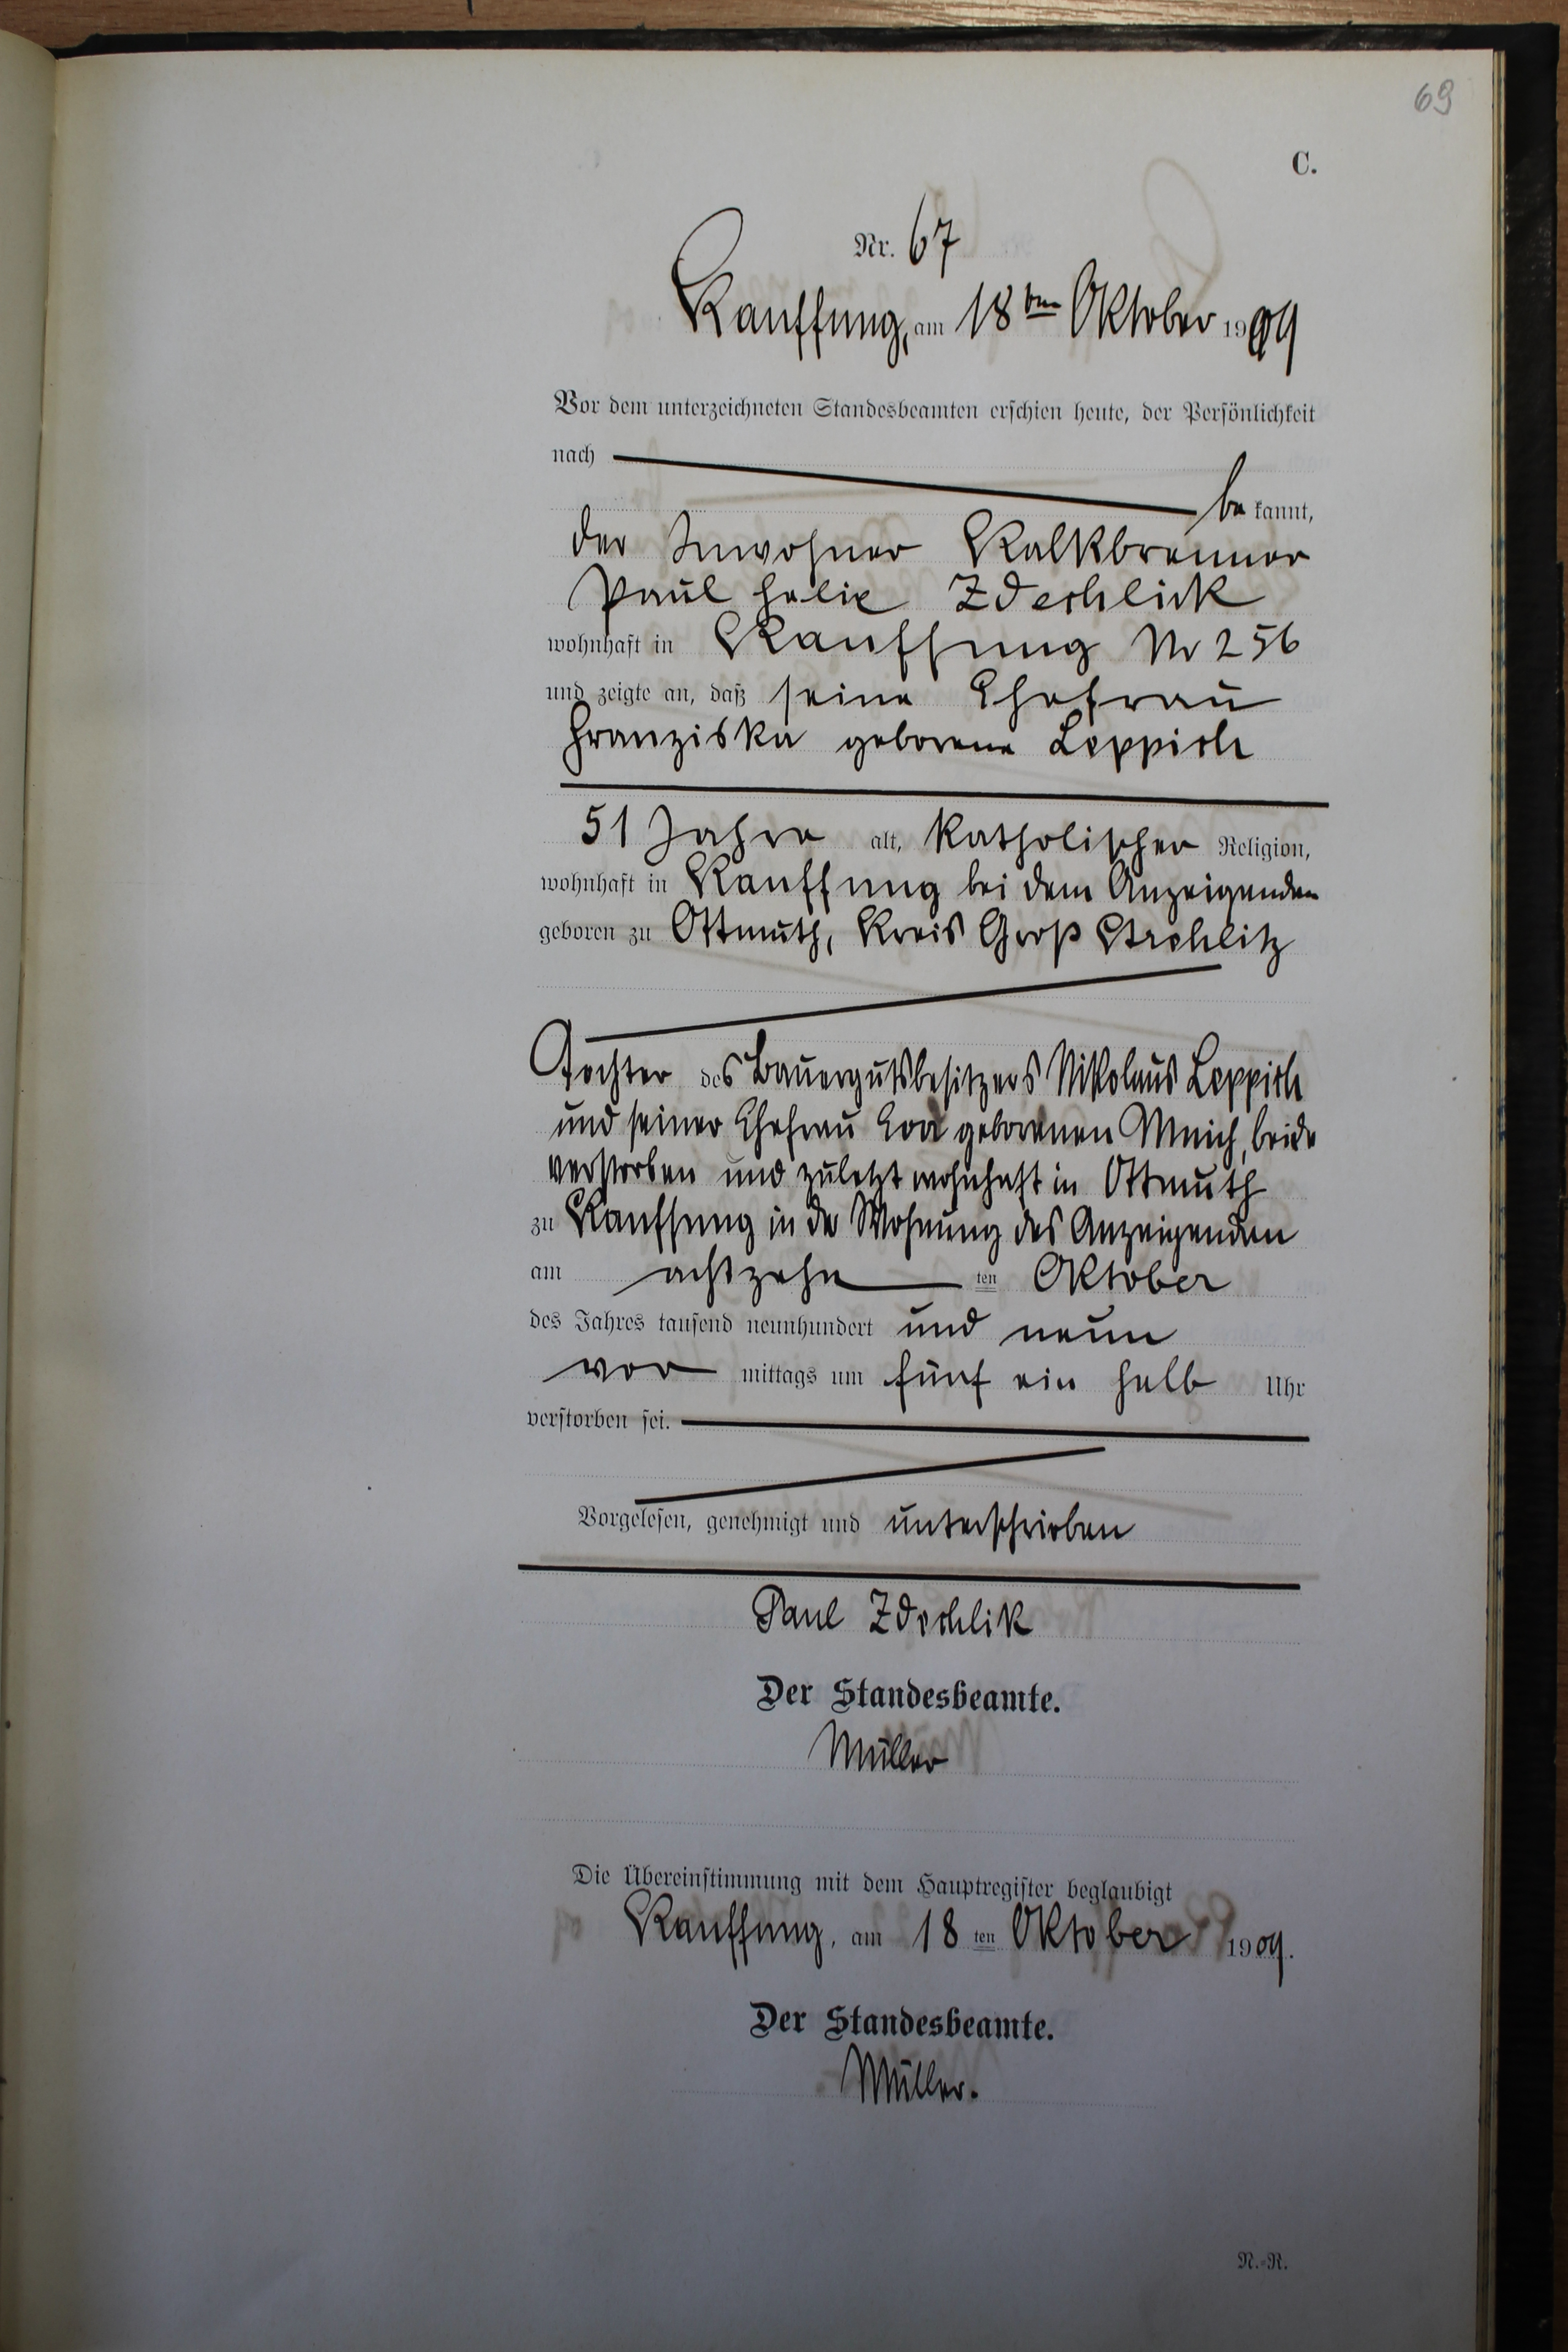 69
C.
Nr. 67
Kauffung, am 18ten Oktober 1909
Vor dem unterzeichneten Standesbeamten erschien heute, der Persönlichkeit
nach
bekannt,
der Inwohner Kalkbrenner
Paul Felix Zdechlick
wohnhaft in Kauffung Nr 256
und zeigte an, daß seine Ehefrau
Franziska geborene Leppich
51 Jahre alt, katholischer Religion,
wohnhaft in Kauffung bei dem Anzeigenden
geboren zu Ottmuth, Kreis Groß Strehlitz
Tochter des Bauergutsbesitzers Nikolaus Leppich
und seiner Ehefrau Eva geborenen Mnich, beide
verstorben und zuletzt wohnhaft in Ottmuth
zu Kauffung in der Wohnung des Anzeigenden
am achtzehnten Oktober
des Jahres tausend neunhundert und neun
vormittags um fünf ein halb Uhr
verstorben sei.
Vorgelesen, genehmigt und unterschrieben
Paul Zdechlik
Der Standesbeamte.
Müller
Die Übereinstimmung mit dem Hauptregister beglaubigt
Kauffung, am 18ten Oktober 1909.
Der Standesbeamte.
Müller.
N.-R.